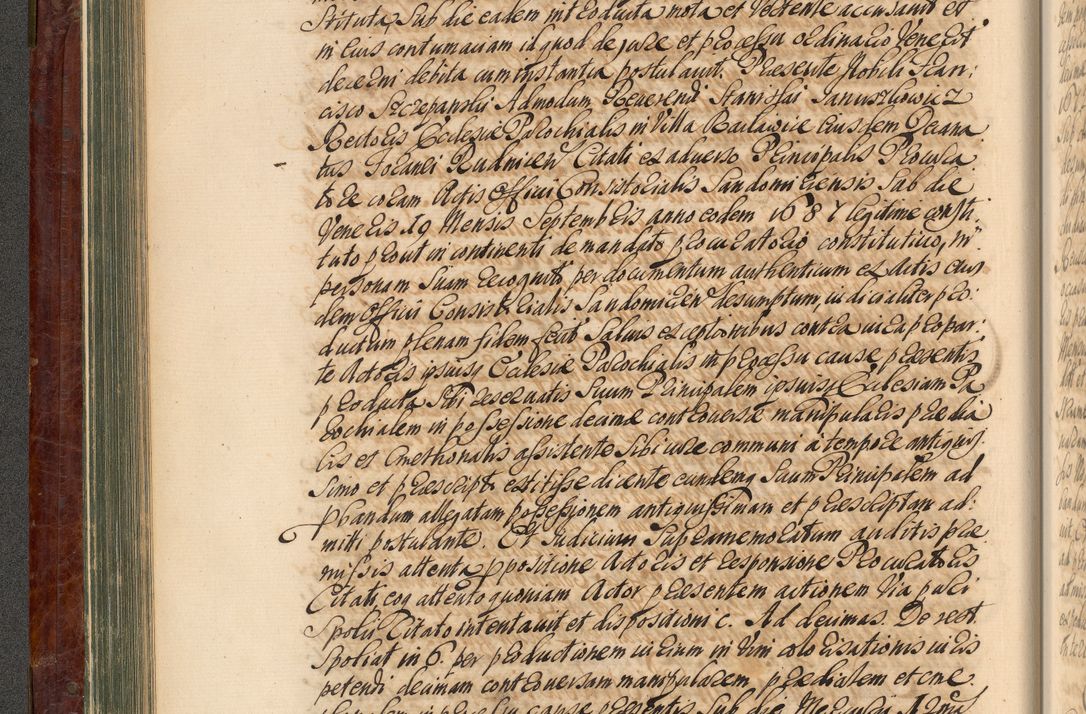 stituta, Sub die eadem introducta nota et Vertente accusavit et
in Eius contumaciam id quod de jure et processu ordinario Venerit
decerni debita cum instantia postulavit. Præsente Nobili Fran:
cisco Szczepanski Admodum Reverendi Stanislai Januszkowicz
Rectoris Ecclesiæ Parochialis in Villa Eiusdem Decana
tus Foranei Rudnicen Citati ex adverso Principalis Procura
tore coram Actis Officii Consistorialis Sandomiriensis Sub die
Veneris 19 Mensis Septembris anno eodem 1687 legitime consti:
tuto prout in continenti de mandato procuratorio constitutivo, in
personam Suam recogniti per documentum authenticum ex Actis eius
dem Officii Consistorialis Sandomirien desumptum, iudicialiter pro:
ductum plenam fidem fecit Salvis exceptionibus contra iura pro par:
te Actoris ipsiusq Ecclesiæ Parochialis in processu causæ præsentis
producta Sibi reservatis Suum Principalem ipsiusq Ecclesiam Pa
rochialem in possessione decimæ controversæ manipularis prædia
lis et Cmethonalis assistente Sibi iure communi à tempore antiquis:
simo et præscripto extitisse dicente eundemq Suum Principalem ad
pbandum allegatam possessionem antiquissimam et præscriptam ad:
mitti postulante. Et Iudicium Supramemoratum auditis præ
missis attenta ppositione Actoris et responsione Procuratoris
Citati, eoq attento quoniam Actor præsentem actionem Via pulsi
Spolii Citato intentavit et dispositioni c. Ad decimas. De rest.
Spoliat in 6. per productionem iurium in Vim colorisationis iuris
petendi decimam controversam manipularem prædialem et cme
in processu causæ præsentis Sub die